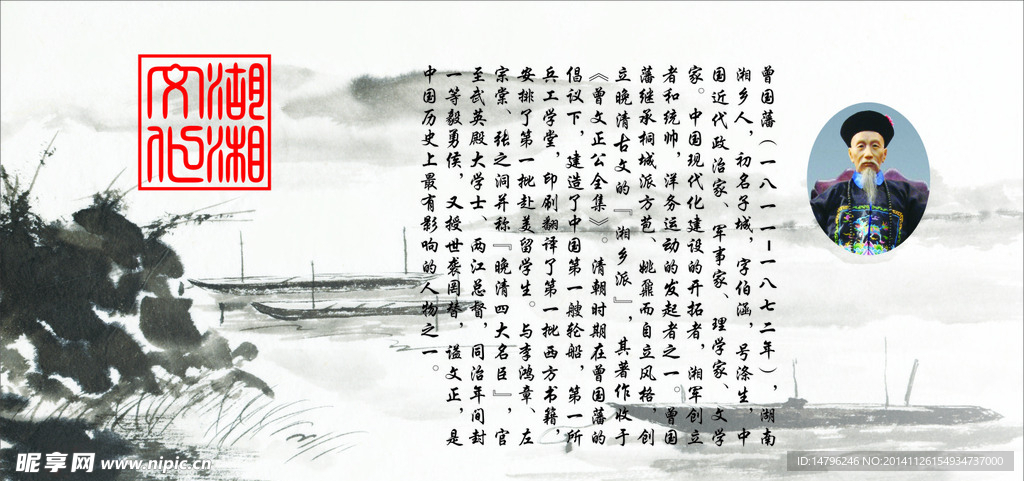 湖湘
文化
曾国藩（一八一一—一八七二年），湖南
湘乡人，初名子城，字伯涵，号涤生，中
国近代政治家、军事家、理学家、文学
家。中国现代化建设的开拓者，湘军创立
者和统帅，洋务运动的发起者之一。曾国
藩继承桐城派方苞、姚鼐而自立风格，创
立晚清古文的『湘乡派』，其著作收于
《曾文正公全集》。清朝时期在曾国藩的
倡议下，建造了中国第一艘轮船，第一所
兵工学堂，印刷翻译了第一批西方书籍，
安排了第一批赴美留学生。与李鸿章、左
宗棠、张之洞并称『晚清四大名臣』，官
至武英殿大学士、两江总督，同治年间封
一等毅勇侯，又授世袭罔替，谥文正，是
中国历史上最有影响的人物之一。
昵享网 www.nipic.cn
ID:14796246 NO:20141126154934737000